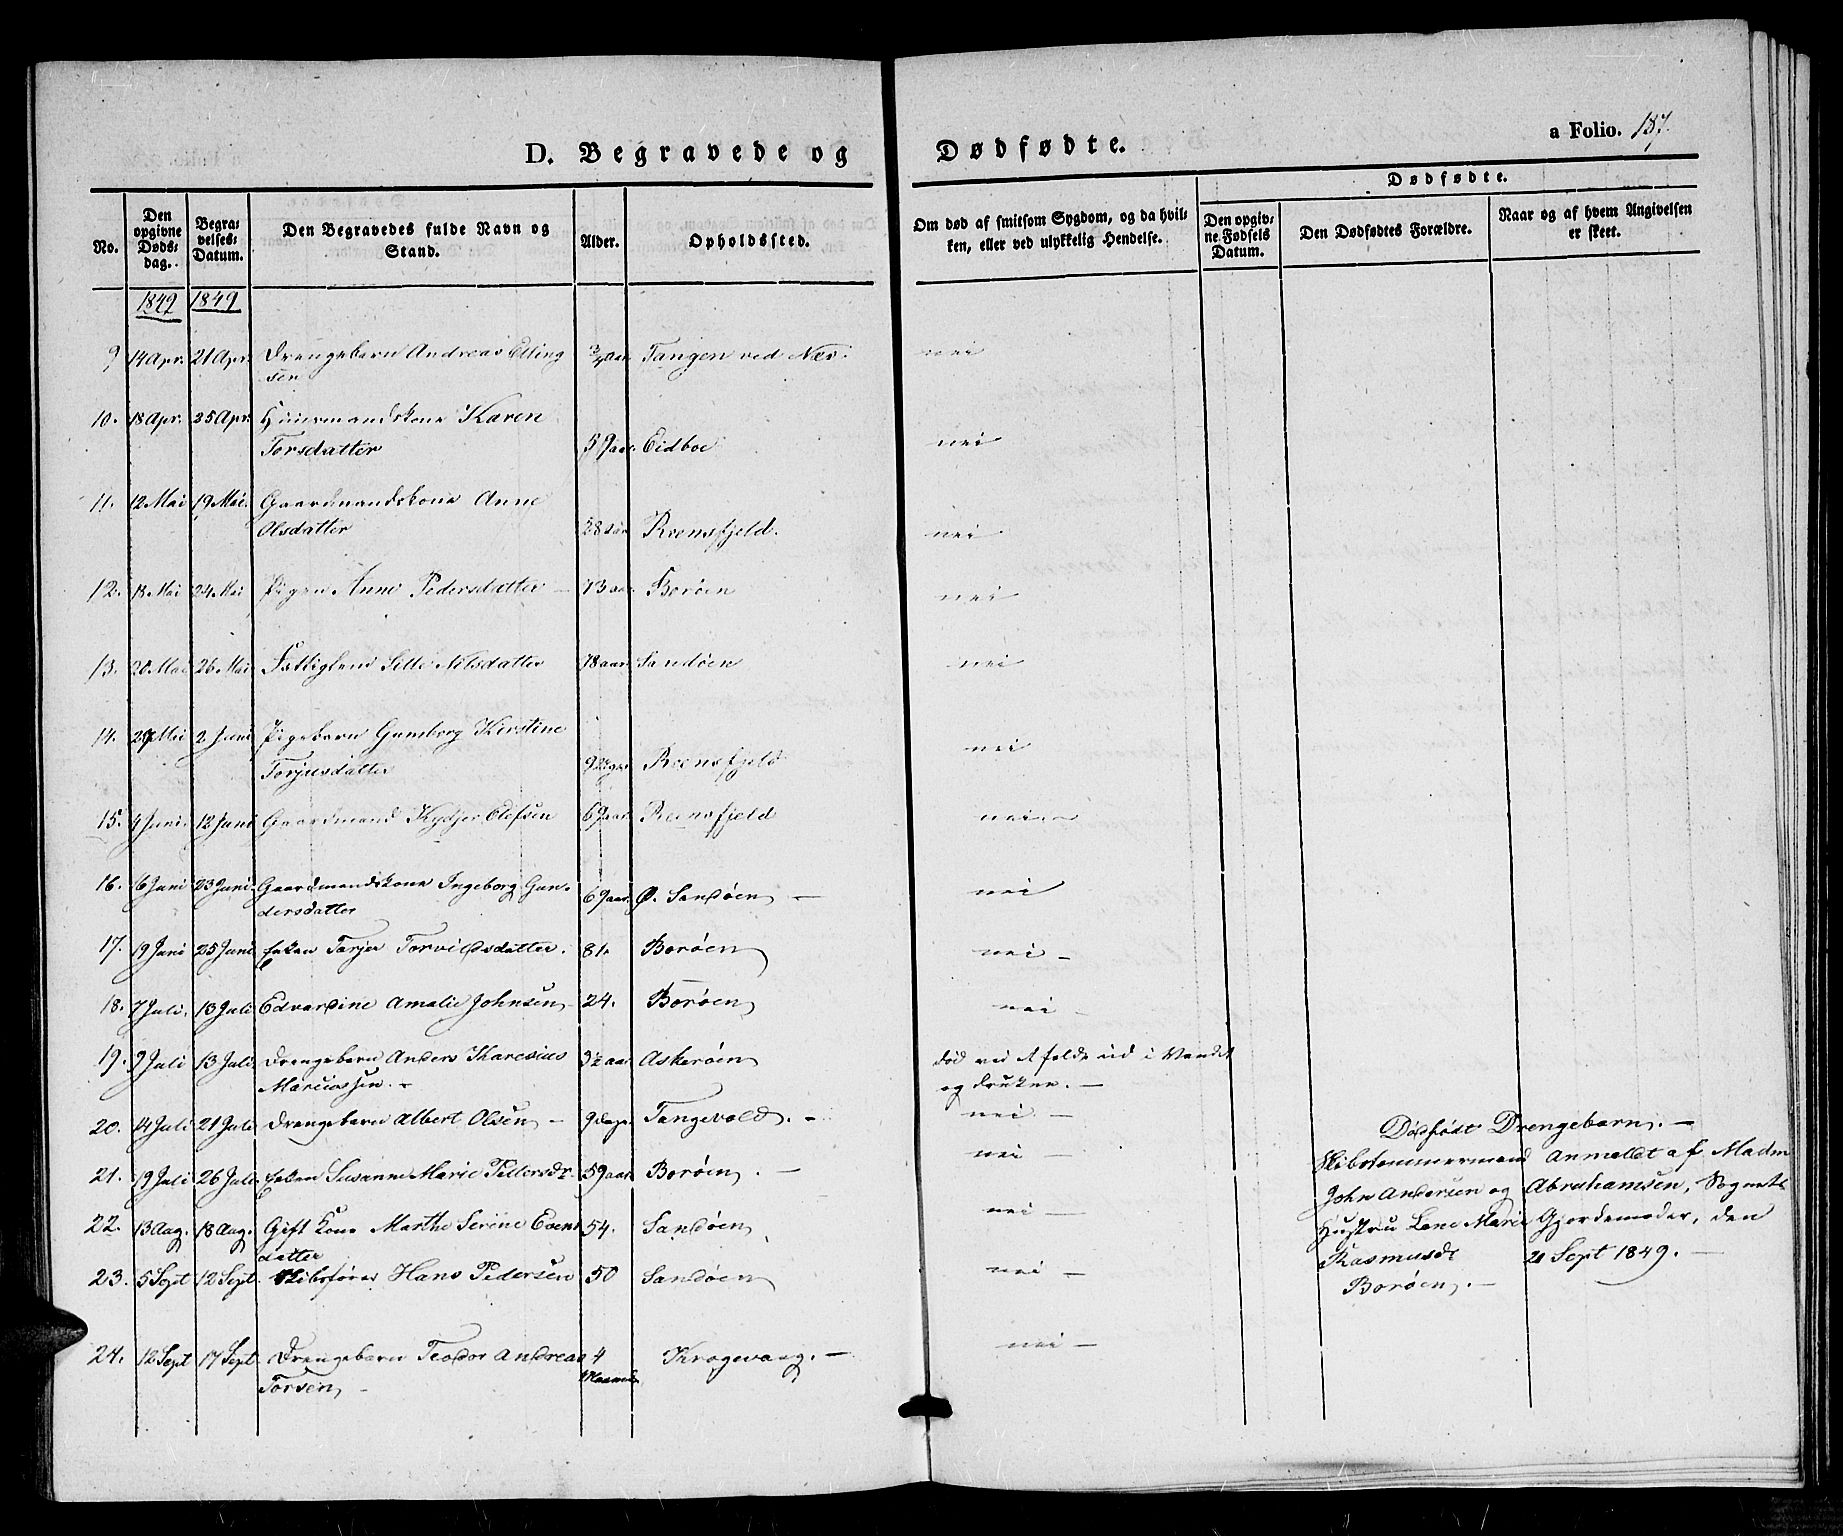 D. Begravede og Dødfødte.
a Folio. 187.
No.
Den opgivne Døds-dag.
Begra-velses-Datum.
Den Begravedes fulde Navn og Stand.
Alder.
Opholdssted.
Om død af smitsom Sygdom, og da hvil-
ken, eller ved ulykkelig Hendelse.
Dødfødte.
Den opgiv-ne Fødsels Datum.
Den Dødfødtes Forældre.
Naar og af hvem Angivelsen er skeet.
1849 1849
9 14 Apr. 21 Apr. Drengebarn Andreas Elling
sen 3/4 aar Tangen ved Næs: nei
10. 18 Apr. 25 Apr. Huusmandskone Karen
Torsdatter 59 aar. Eidboe nei
11. 12 Mai 19 Mai. Gaardmandskone Anne
Olsdatter 28 aar Reensfjeld. nei
12. 18 Mai 24 Mai Pigen Anne Pedersdatter - 73 aar Borøen nei
13. 20 Mai 26 Mai Fattiglem Nilsdatter 78 aar Sandøen nei
14. 29 Mai 2 Juni Pigebarn Gunborg Kirstine
Torjusdatter 9 Reensfjeld nei
15. 4 Juni. 12 Juni Gaardmand Olefsen 69 aar Reensfjeld nei
16. 6 Juni 23 Juni. Gaardmandskone Ingeborg Gun-
dersdatter 69 aar. Ø. Sandøen - nei
17. 19 Juni 25 Juni Enken Torjer Torvildsdatter. 81. Borøen nei -
18. 7 Juli. 13 Juli Edvardine Amalie Johnsen 24. Borøen nei -
19. 9 Juli 13 Juli Drengebarn Anders
Marcussen. - 3½ aar Askerøen død ved at falde ud i Vandet
og drukne. -
20. 14 Juli 21 Juli Drengebarn Albert Olsen - 9 dage. Tangevold. - nei -
21. 19 Juli 26 Juli Enken Susanne Marie Pedersdr. 59 aar Borøen. - nei -
22. 13 Aug. 18 Aug. Gift Kone Marthe Serine Evens
datter 54. Sandøen nei -
23. 5 Sept 12 Sept. Skibsfører Hans Pedersen 50 Sandøen nei -
24. 12 Sept 17 Sept Drengebarn Teodor Andreas
Torsen - 4
Maaneder Kragevaag. - nei -
Dødfødt Drengebarn. -
Skibstømmermand Anmeldt af Madm
John Andersen og Abrahamsen, Sognets
Hustru Lene Marie Gjordemoder, den
Rasmusdr 21 Sept 1849. -
Borøen. -